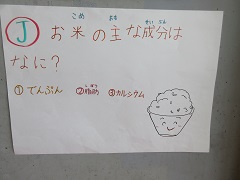 J お米の主な成分は
なに?
①でんぷん ②脂肪 ③カルシウム